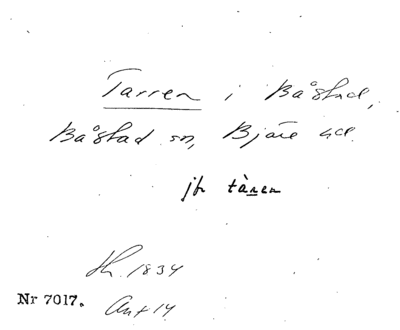 Tarren i Båstad,
Båstad sn, Bjäre hd.
jfr tàren
Hr. 1834
Nr 7017. Ant 14